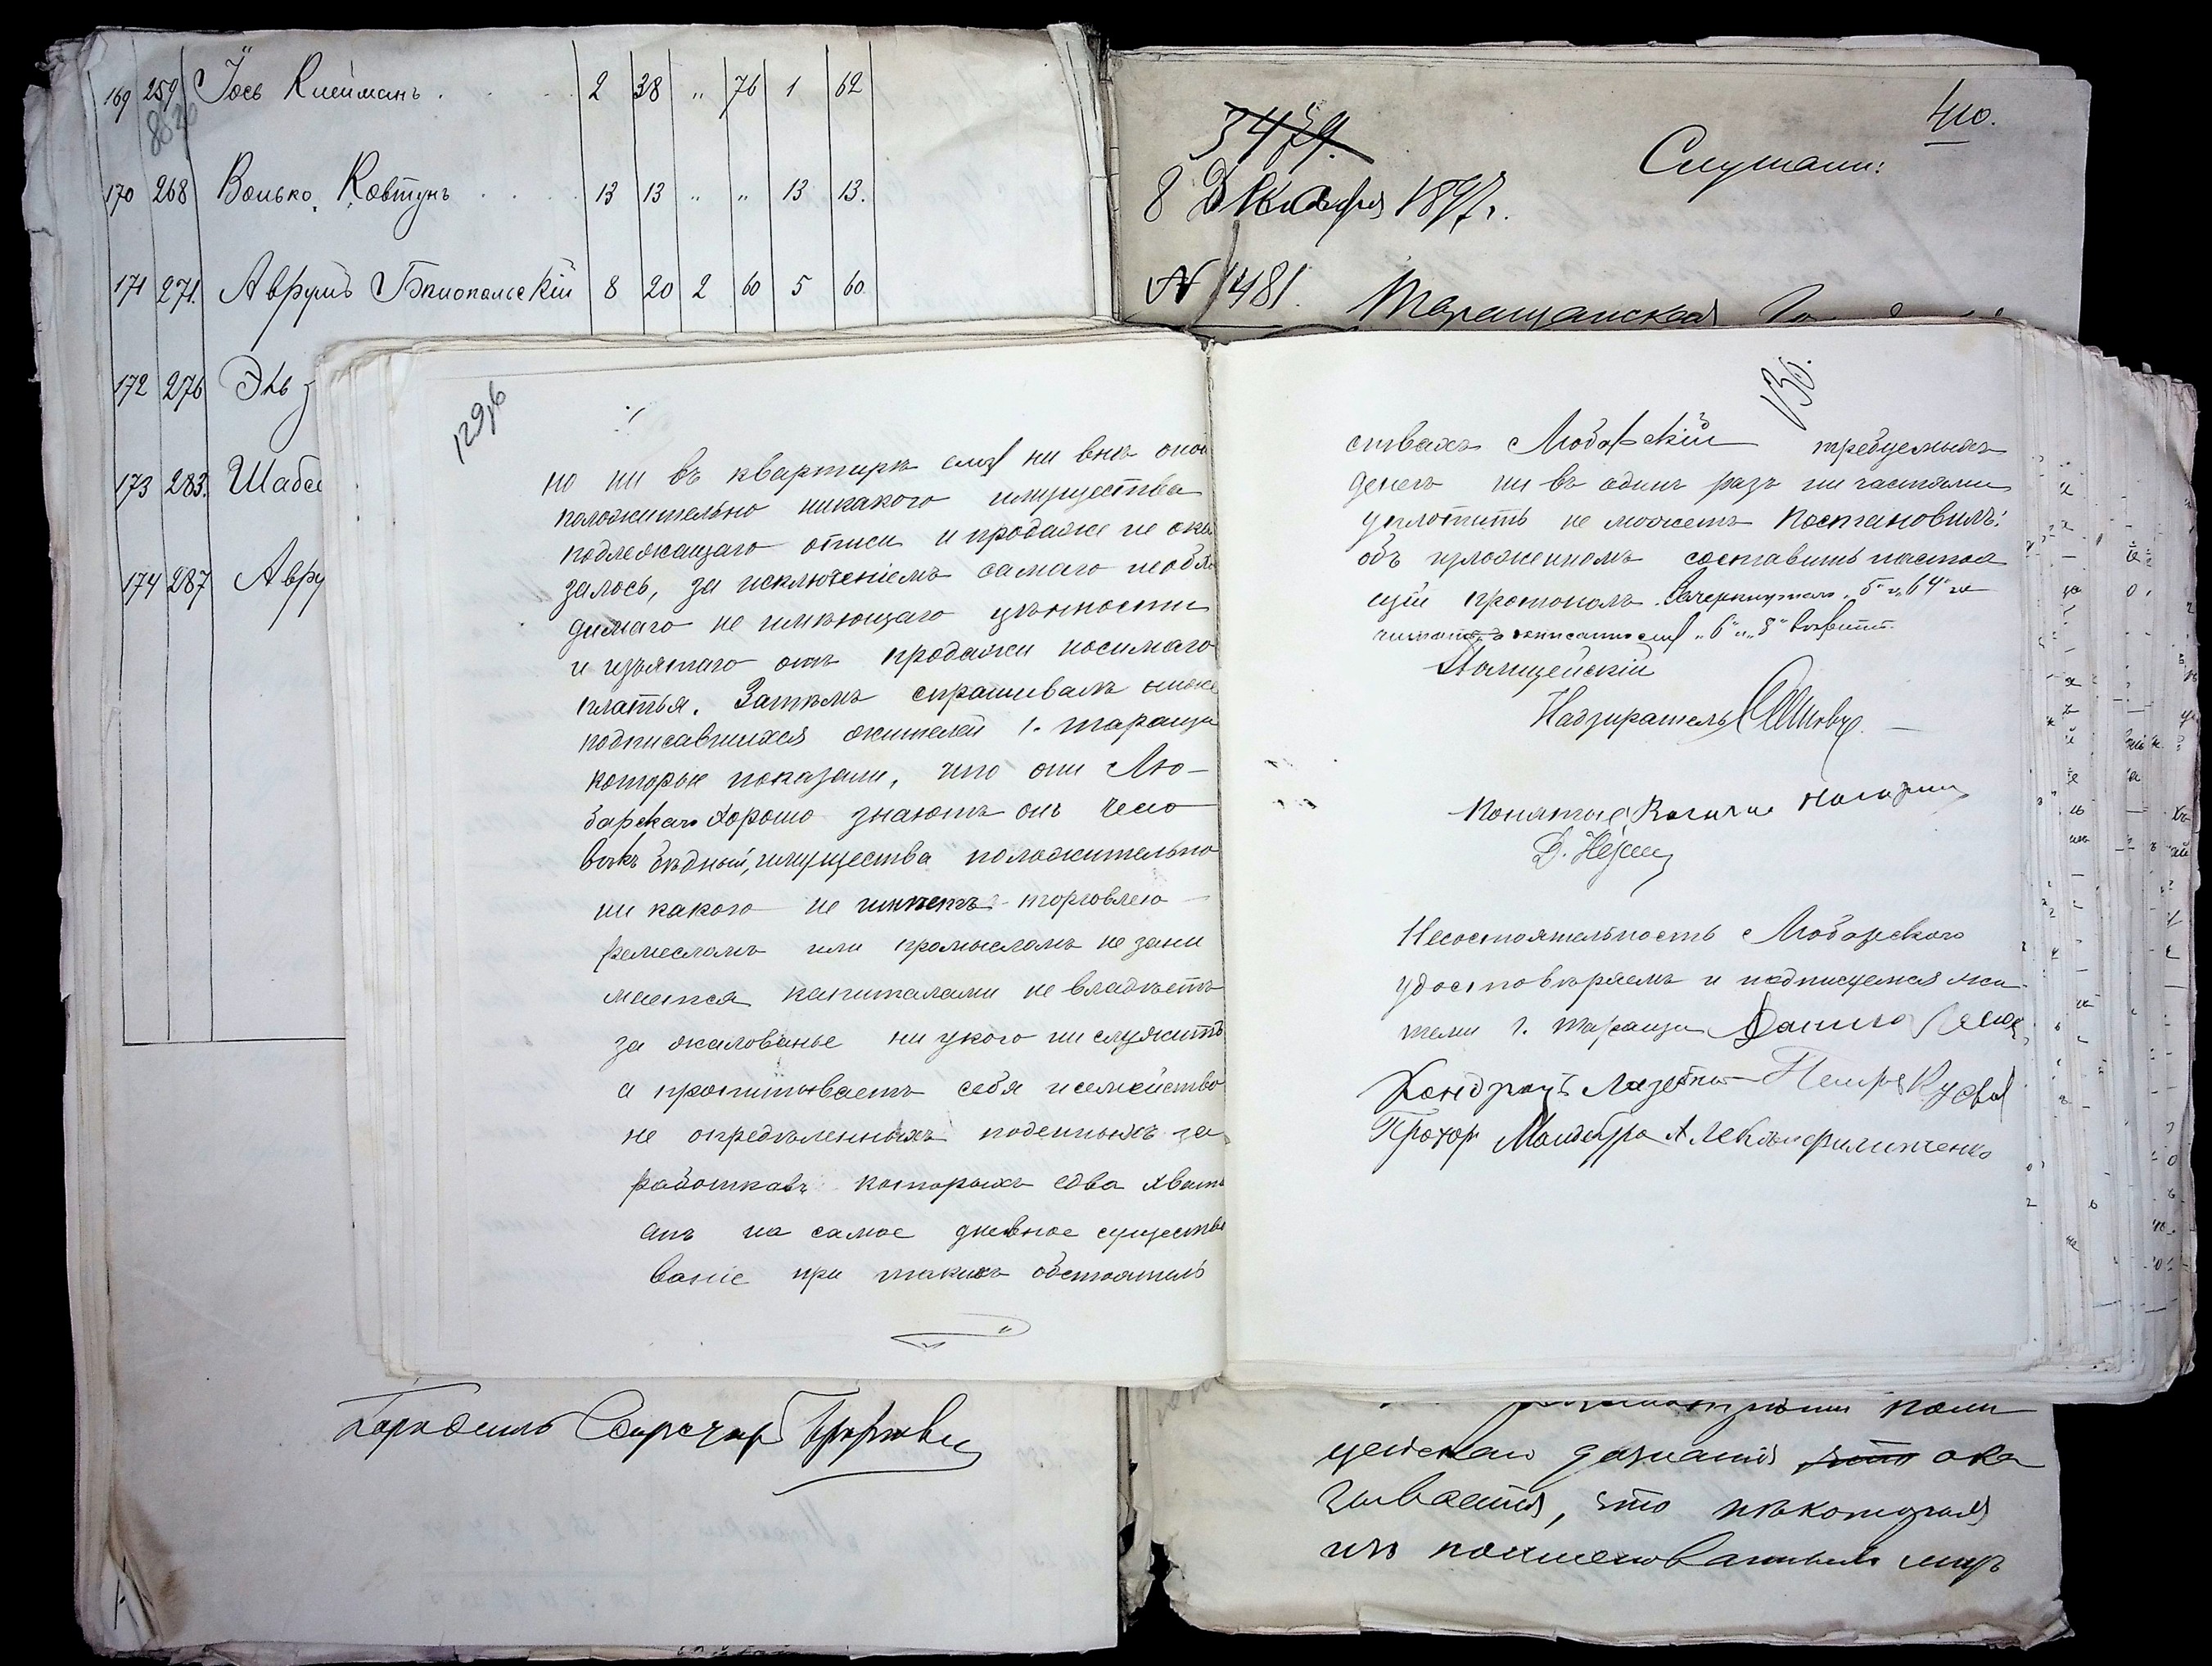 169 259 Іось Клейманъ 2 38 " 76 1 62
170 268 Волько Ковтунъ 13 13 " " 13 13.
171 271. Аврумъ Бялопольскій 8 20 2 60 5 60
172 276
173 283. Шабс
174 287 Авру
410.
3479.
Слушали:
8 Декабря 1897 г.
№ 1481.
Таращанская
129об
но ни въ квартирѣ его ни внѣ оной
положительно никакого имущества
подлежащаго описи и продаже не ока
залось, за исключеніемъ самаго необхо
димаго не имѣющаго цѣнности
и изъятаго отъ продажи носимаго
платья. Затѣмъ спрашивалъ ниже
подписавшихся жителей г. Таращи
которые показали, что они Лю-
барскаго хорошо знаютъ онъ чело
вѣкъ бѣдный, имущества положительно
ни какого не имѣетъ торговлею
ремесломъ или промысломъ не зани
мается капиталами не владѣетъ
за жалованье ни укого ни служитъ
а пропитываетъ себя и семейство
не опредѣленныхъ поденныхъ за
работковъ которыхъ едва хвата
етъ на самое дневное существо
ваніе при такихъ обстоятель
130.
ствахъ Любарскій требуемыхъ
денегъ ни въ одинъ разъ ни частями
уплотить не можетъ Постановилъ:
объ изложенномъ составить настоя
щій протоколъ. Зачеркнутаго "5" и "64" не
читать а написанное "6" и "8"
Полицейскій
Надзиратель
Понятые
Несостоятельность Любарского
удостовѣряемъ и подписуемся жи
тели г. Таращи Данило
Кондратъ Петръ
Прохор
поли
цейскаго дознанія что ока
зывается, что нѣкоторыя
изъ поименованныхъ лицъ